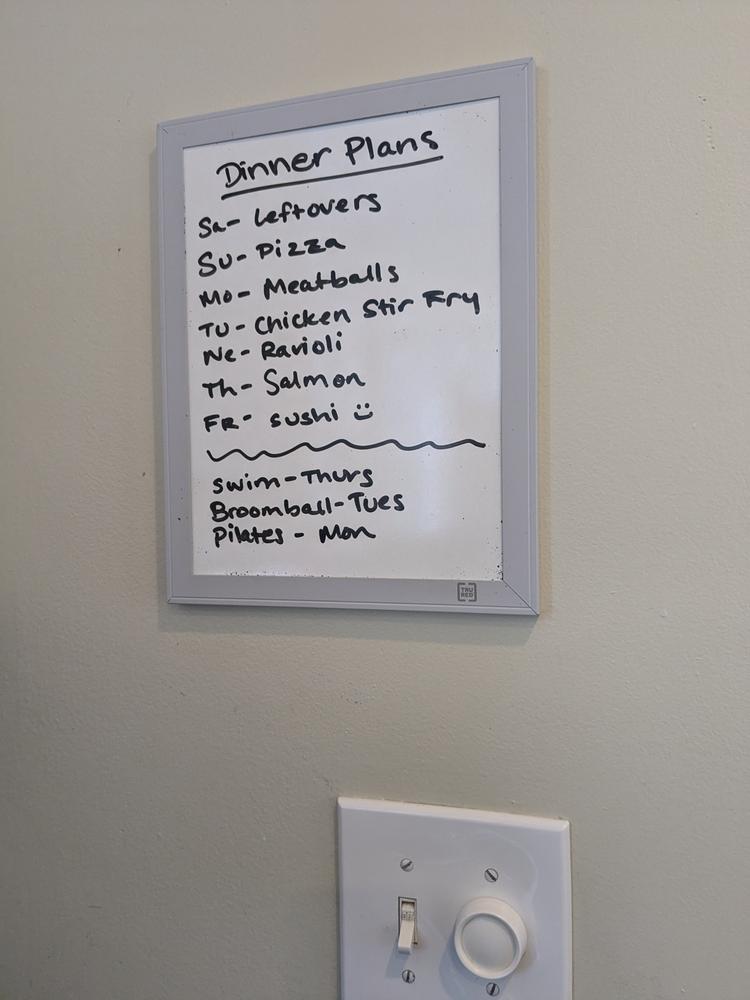 Dinner Plans
Sa- Leftovers
Su- Pizza
Mo- Meatballs
Tu- Chicken Stir Fry
We- Ravioli
Th- Salmon
FR- sushi
swim-Thurs
Broomball-Tues
Pilates - Mon
TRU
RED